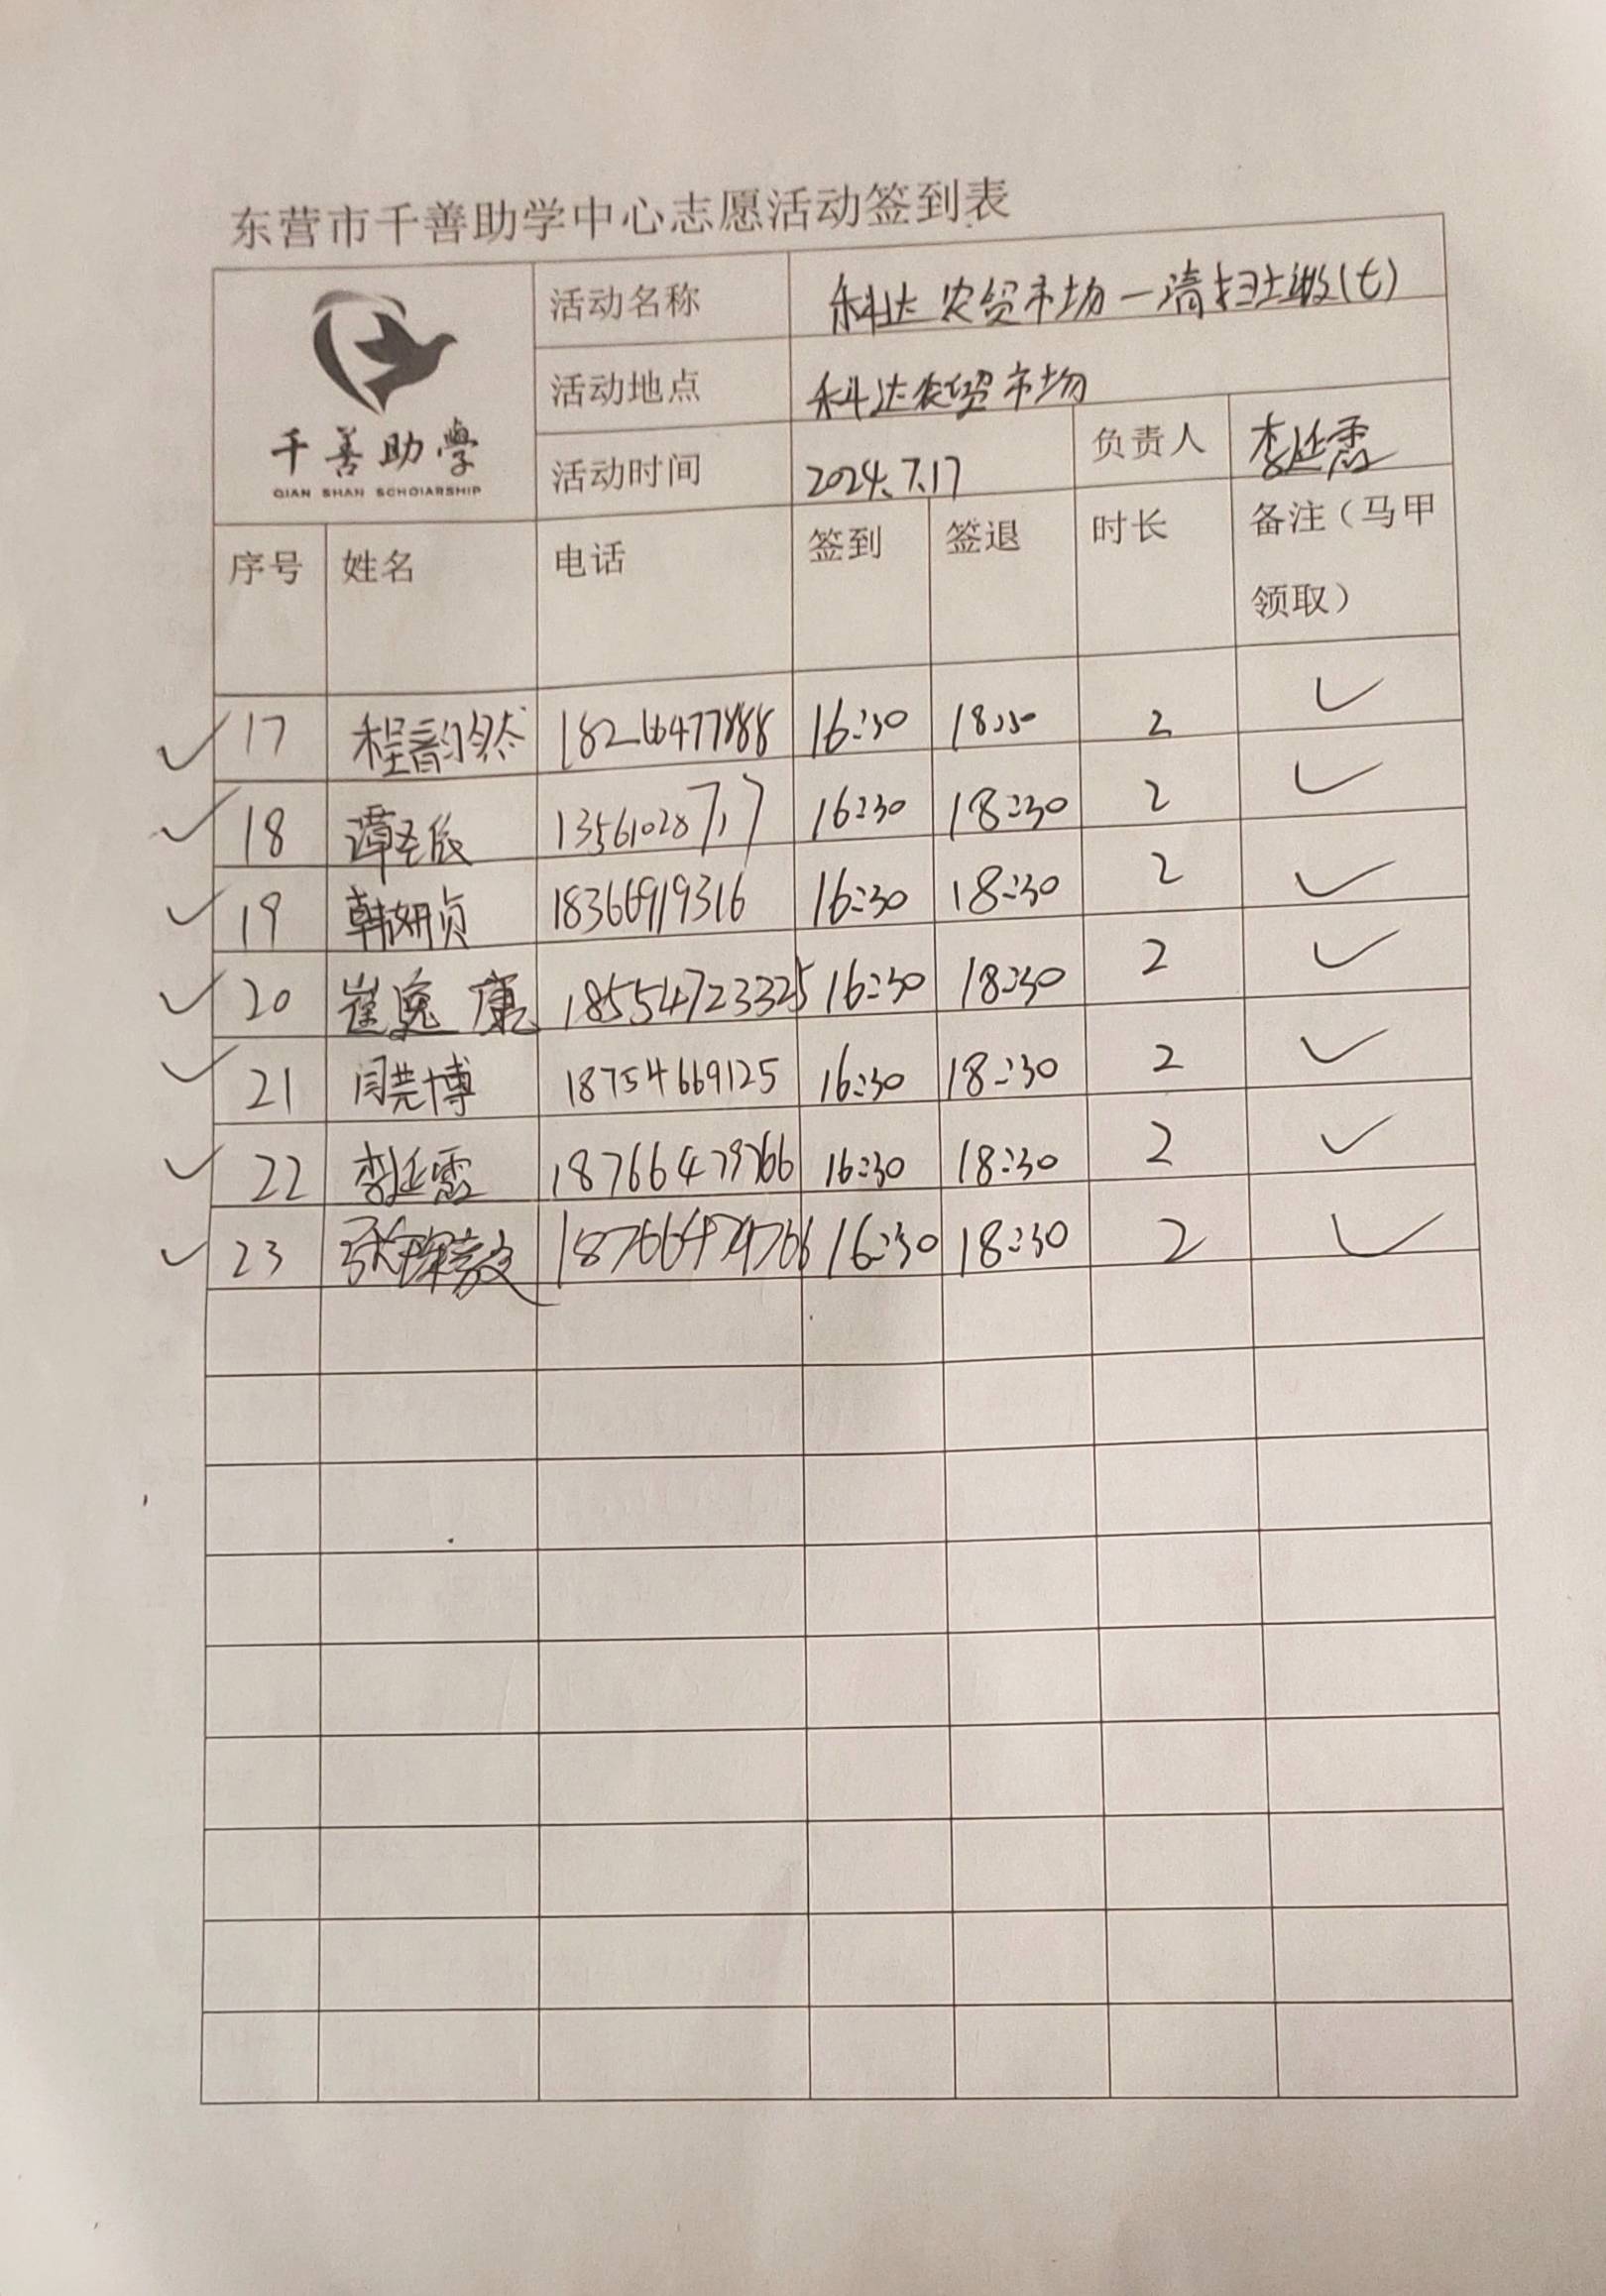 东营市千善助学中心志愿活动签到表
千善助學
QIAN SHAN SCHOIARSHIP
活动名称 科达农贸市场一清扫垃圾(七)
活动地点 科达农贸市场
活动时间 2024.7.17 负责人 李延霞
序号 姓名 电话 签到 签退 时长 备注（马甲
领取）
17 程韵然 16:30 2 ✓
18 16:30 18:30 2 ✓
19 韩妍贞 18366919316 16:30 18:30 2 ✓
20 崔逸康 18554723325 16:30 18:30 2 ✓
21 闫尧博 18754669125 16:30 18:30 2 ✓
22 李延霞 16:30 18:30 2 ✓
23 16:30 18:30 2 ✓